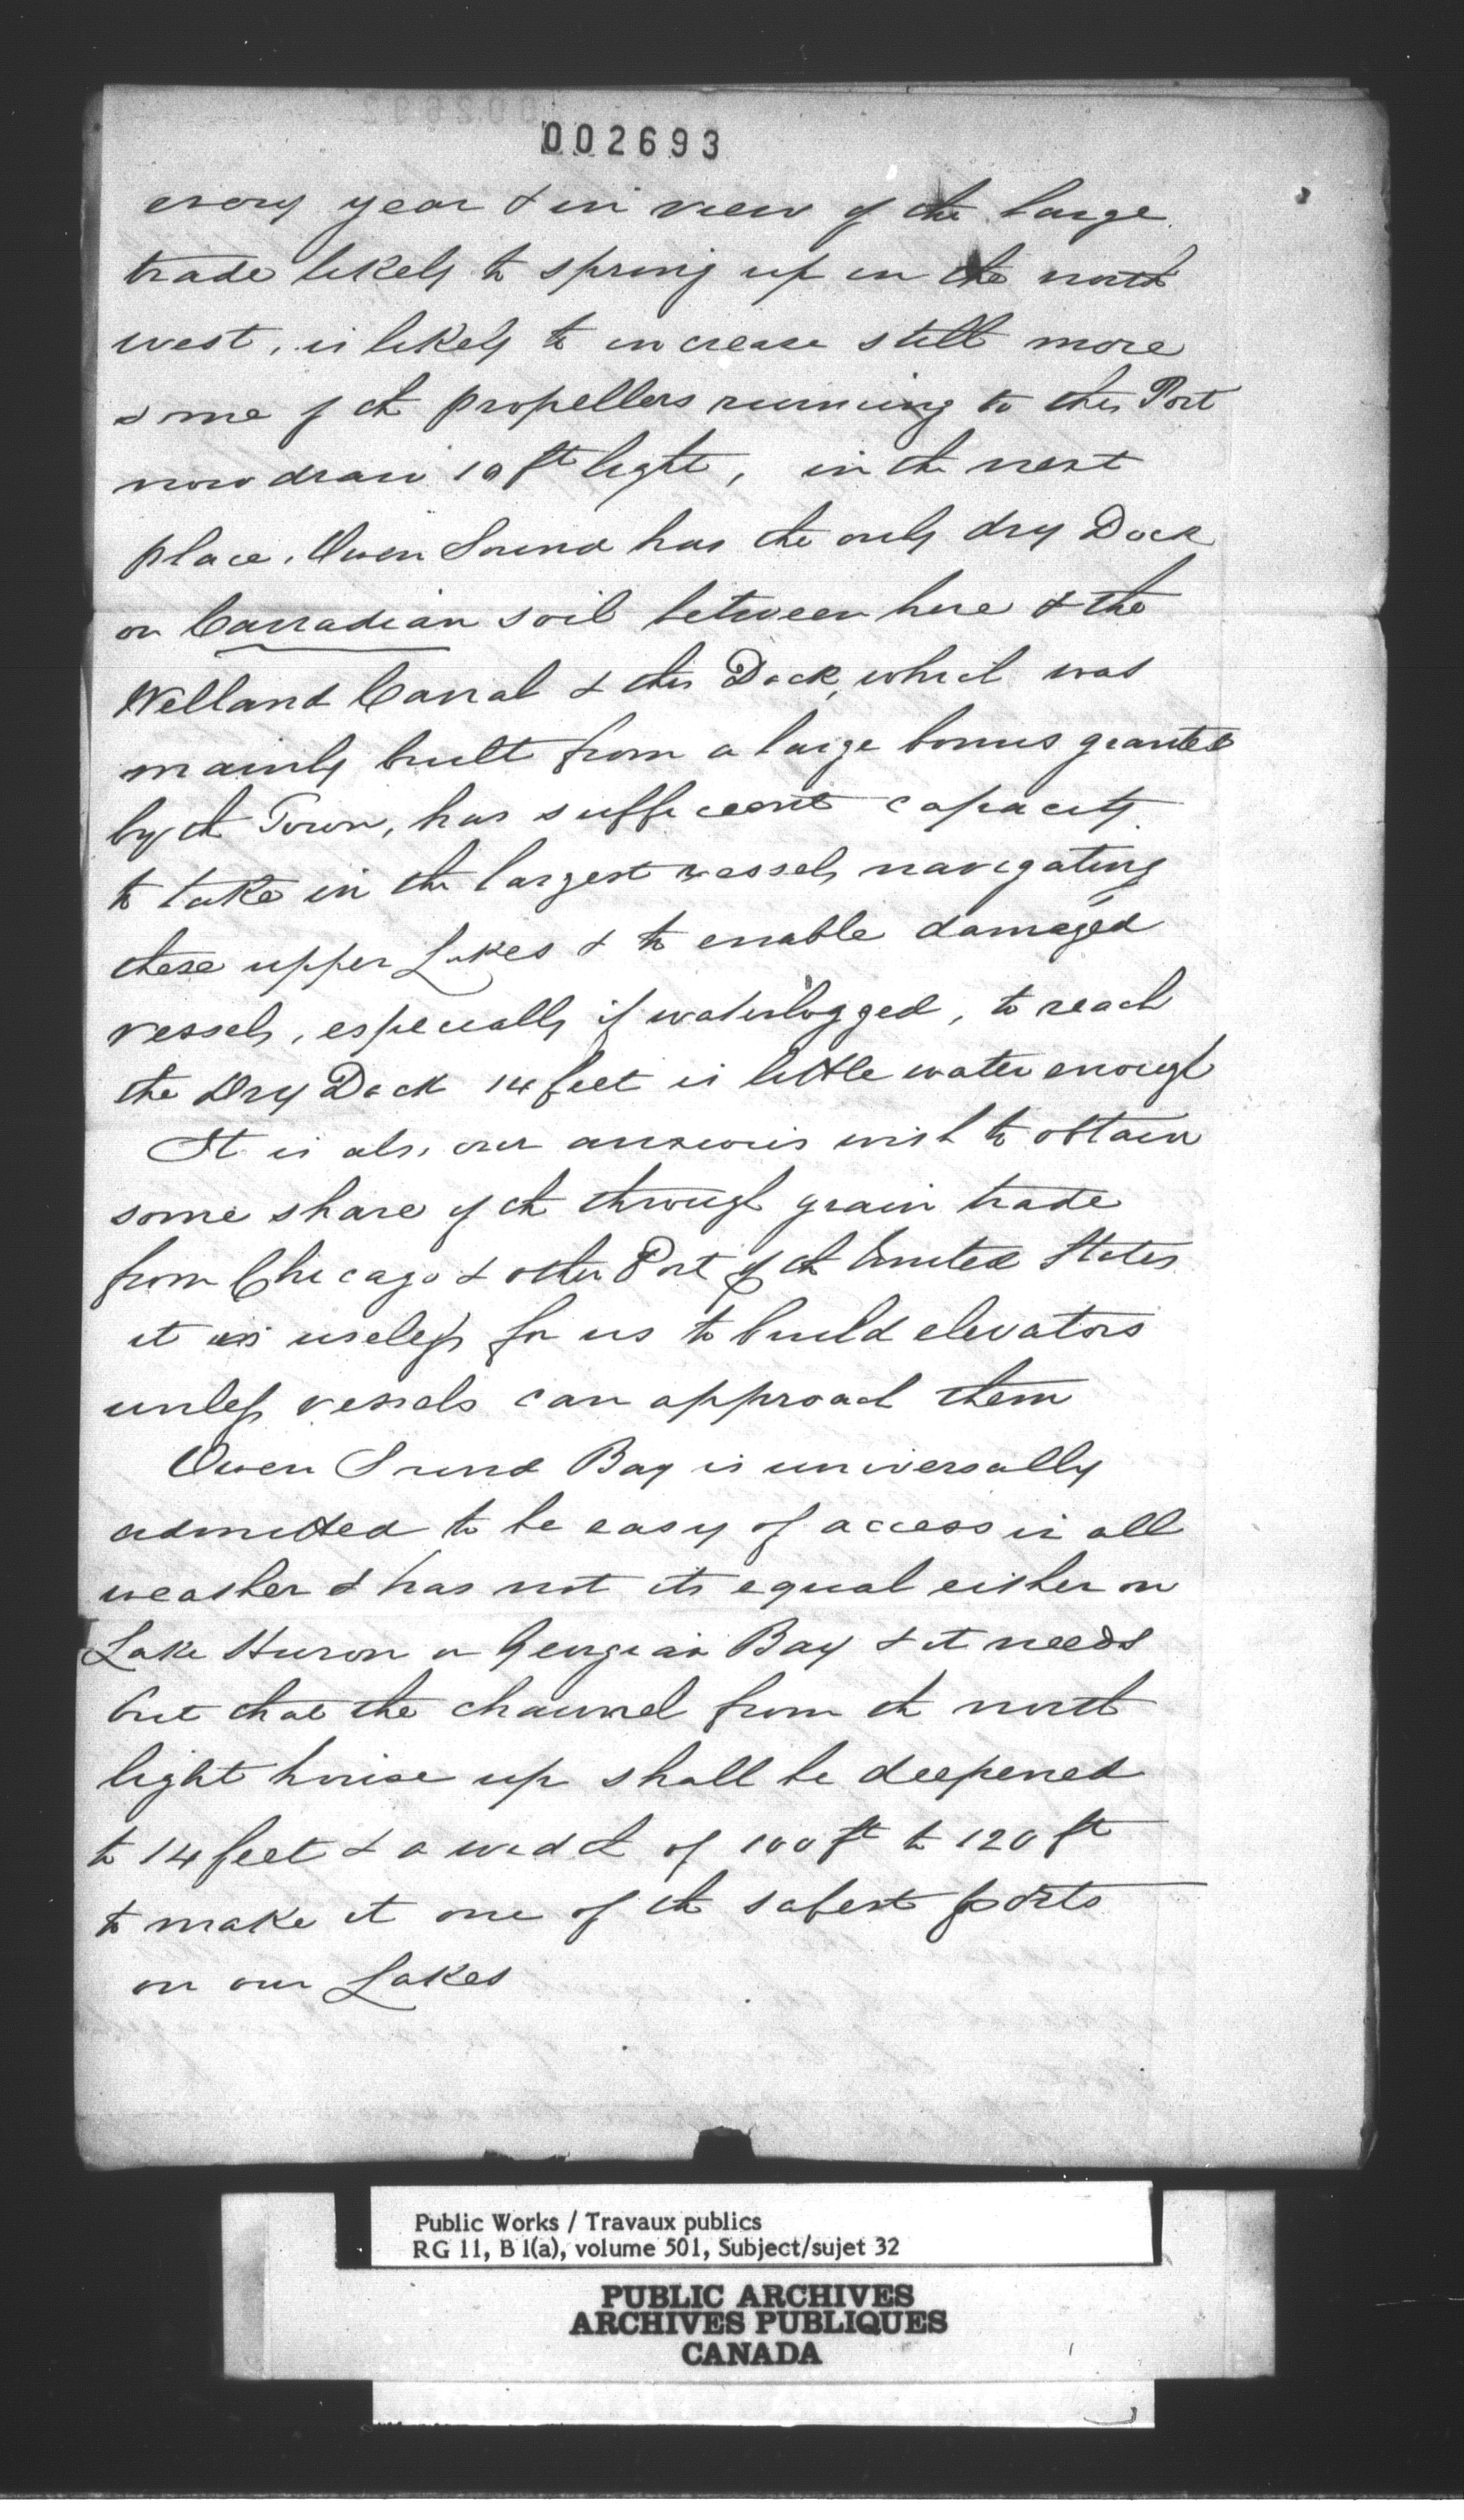 002693
every year & in view of the large
trade likely to spring up in the north
west, is likely to increase still more
some of the propellers running to this Port
now draw 10 ft light, in the next
place. Owen Sound has the only dry Dock
on Canadian soil between here & the
Welland Canal & this Dock, which was
mainly built from a large bonus granted
by the Town, has sufficient capacity
to take in the largest vessels navigating
these upper Lakes & to enable damaged
vessels, especially if waterlogged, to reach
the Dry Dock 14 feet is little water enough
It is also our anxious wish to obtain
some share of the through grain trade
from Chicago & other Port of the United States
it is useless for us to build elevators
unless vessels can approach them
Owen Sound Bay is universally
admitted to be easy of access in all
weather & has not its equal either on
Lake Huron or Georgian Bay & it needs
but that the channel from the north
light house up shall be deepened
to 14 feet & a width of 100 ft to 120 ft
to make it one of the safest ports
on our Lakes
Public Works / Travaux publics
RG 11, B 1(a), volume 501, Subject/sujet 32
PUBLIC ARCHIVES
ARCHIVES PUBLIQUES
CANADA